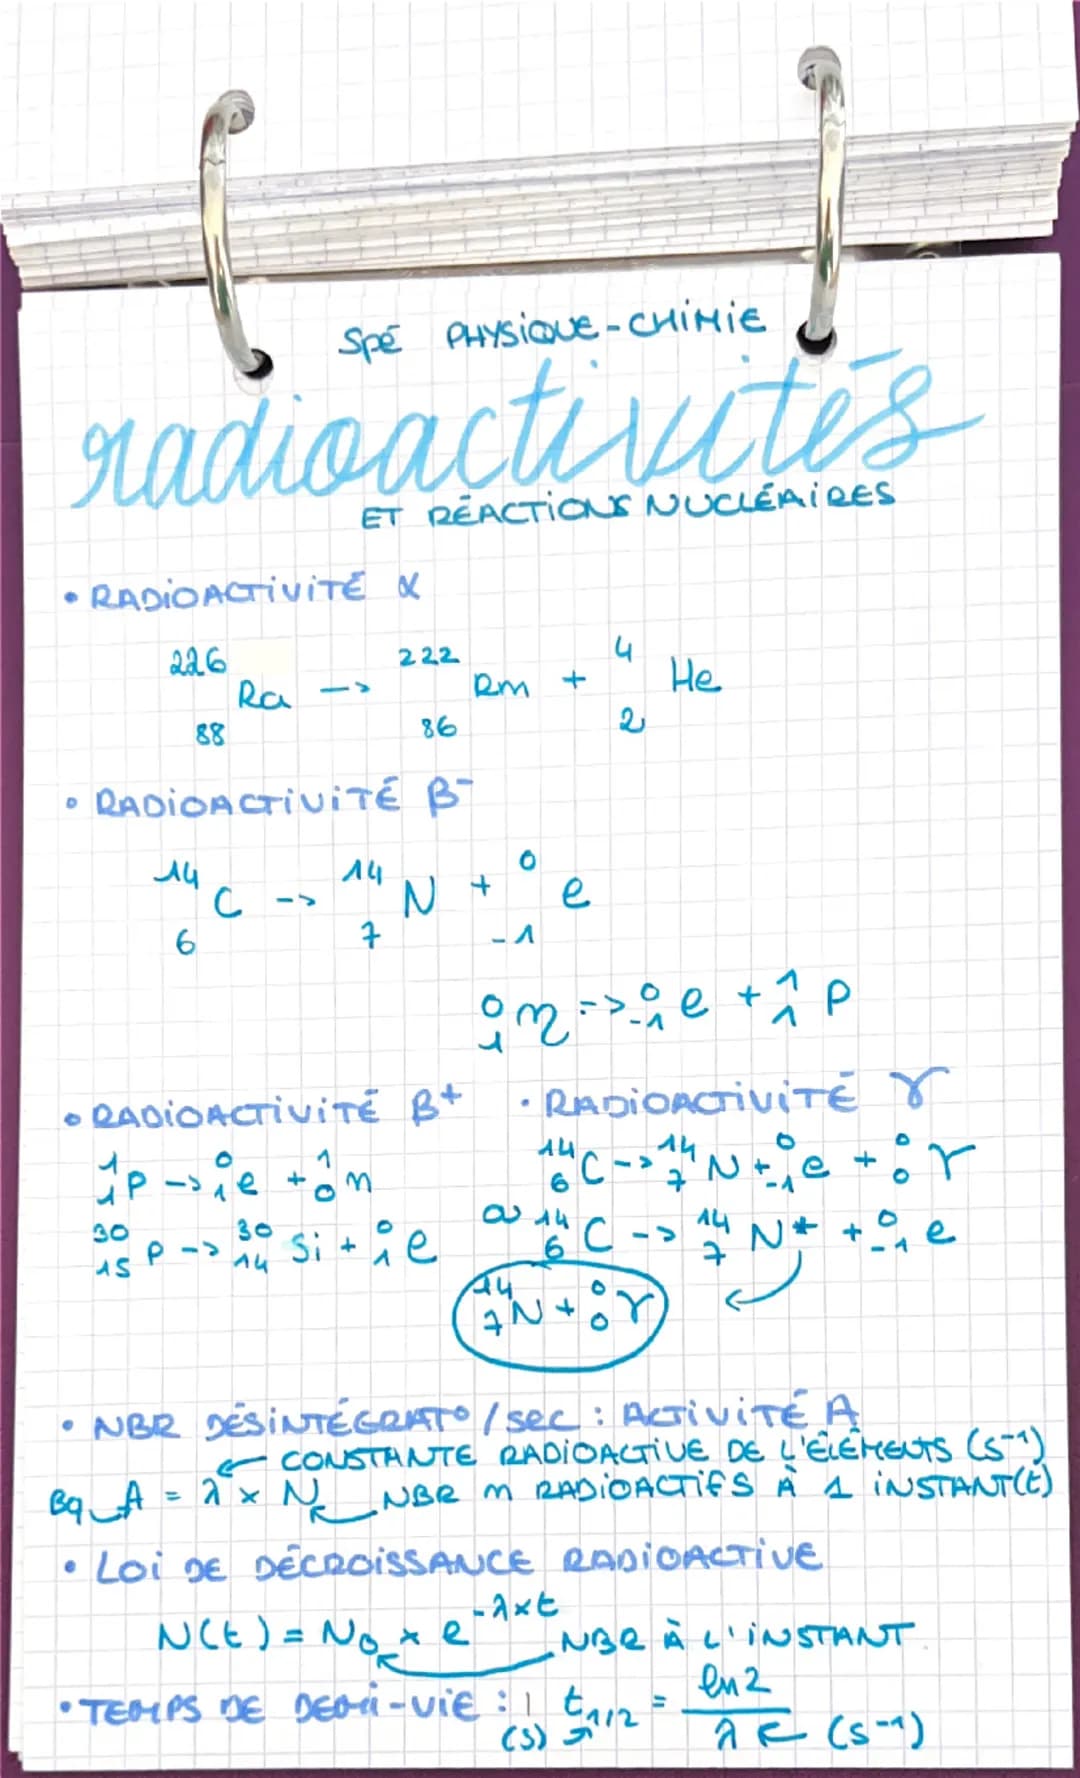 SPÉ PHYSIQUE-CHIMIE
radioactivités
ET RÉACTIONS NUCLÉAIRES
• RADIOACTIVITÉ α
²²⁶₈₈Ra -> ²²²₈₆Rm + ⁴₂He
• RADIOACTIVITÉ β⁻
¹⁴₆C -> ¹⁴₇N + ⁰₋₁e
⁰₁n -> ⁰₋₁e + ¹₁p
• RADIOACTIVITÉ β+
¹₁p -> ⁰₁e + ¹₀n
³⁰₁₅P -> ³⁰₁₄Si + ⁰₁e
• RADIOACTIVITÉ γ
¹⁴₆C -> ¹⁴₇N + ⁰₋₁e + ⁰₀γ
¹⁴₆C -> ¹⁴₇N* + ⁰₋₁e
¹⁴₇N + ⁰₀γ
• NBR DÉSINTÉGRAT° / SEC : ACTIVITÉ A
CONSTANTE RADIOACTIVE DE L'ÉLÉMENTS (s⁻¹)
Bq A = λ × N NBR n RADIOACTIFS À 1 INSTANT(t)
• LOI DE DÉCROISSANCE RADIOACTIVE
N(t) = N₀ × e^(-λ×t)
NBR À L'INSTANT
• TEMPS DE DEMI-VIE : (s) t₁/₂ = ln2 / λ (s⁻¹)